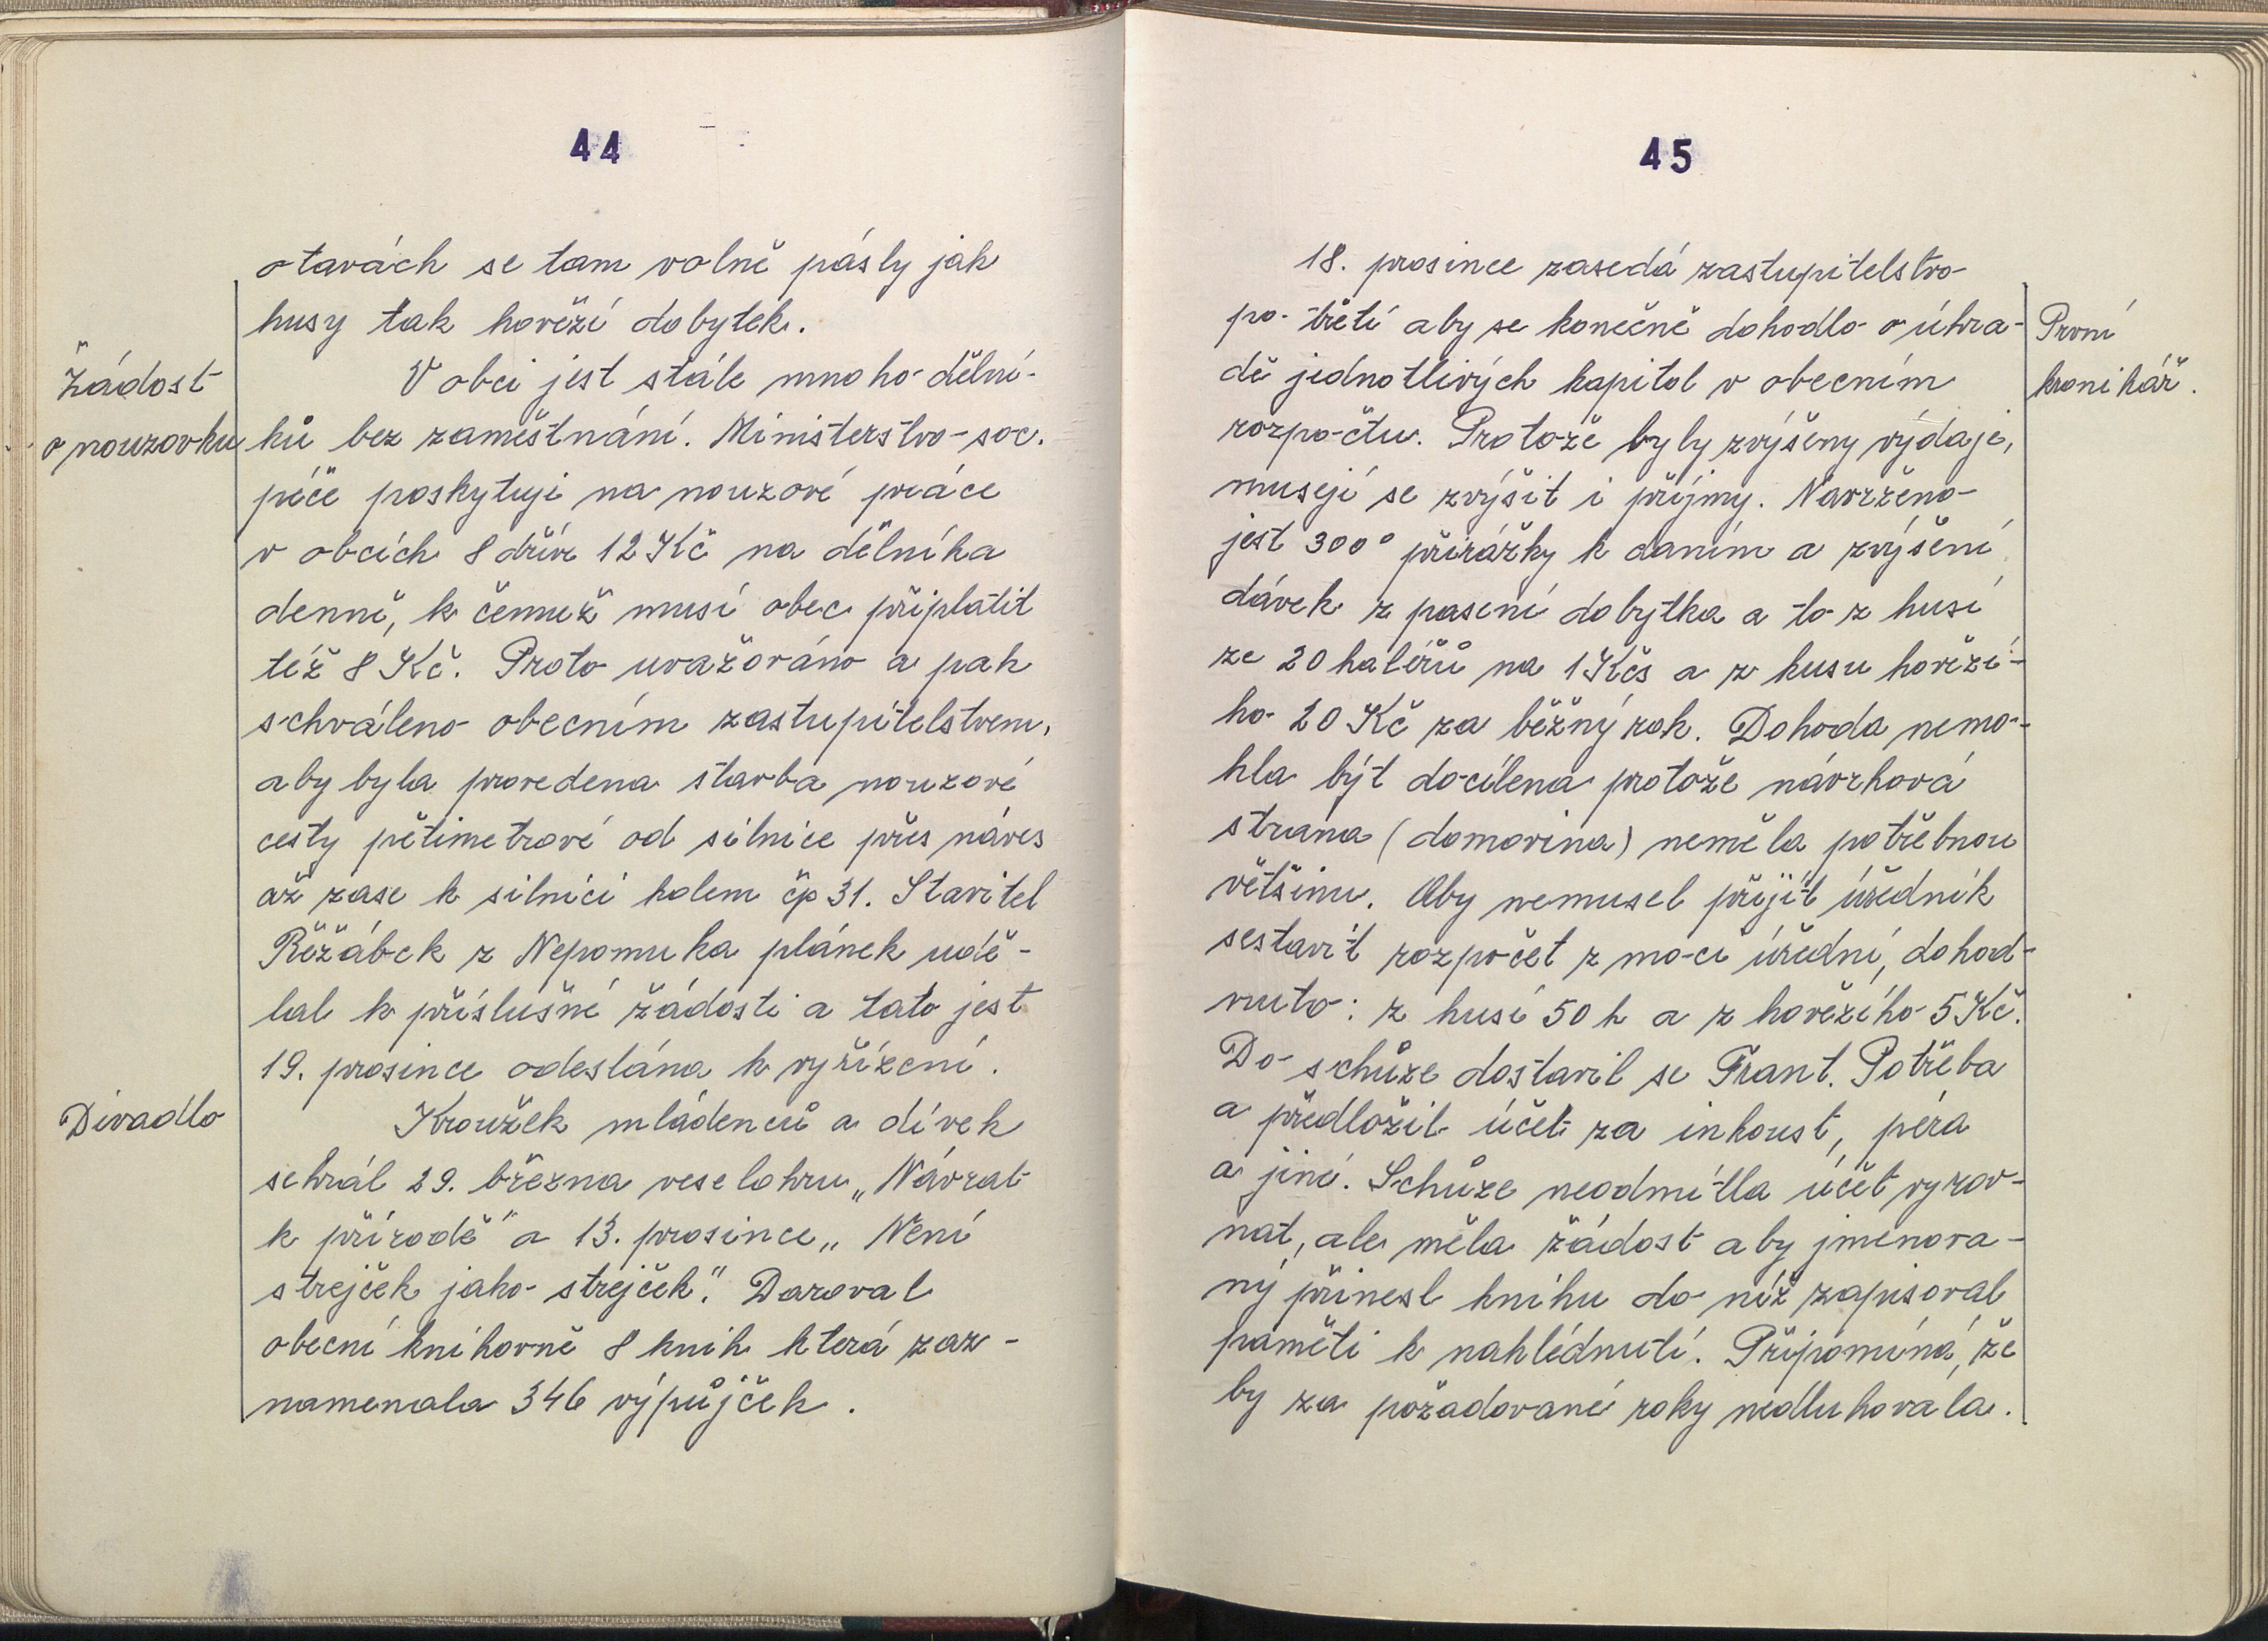 44
otavách se tam volně pásly jak
husy tak hovězí dobytek.
Žádost
o nouzovku
V obci jest stále mnoho dělní-
ků bez zaměstnání. Ministerstvo soc.
péče poskytuje na nouzové práce
v obcích 8 dřív 12 Kč na dělníka
denně, k čemuž musí obec připlatit
též 8 Kč. Proto uvažováno a pak
schváleno obecním zastupitelstvem,
aby byla provedena stavba nouzové
cesty pětimetrové od silnice přes náves
až zase k silnici kolem čp 31. Stavitel
Běžábek z Nepomuka plánek udě-
lal k příslušné žádosti a tato jest
19. prosince odeslána k vyřízení.
Divadlo
Kroužek mládenců a dívek
sehrál 29. března veselohru „Návrat
k přírodě" a 13. prosince „Není
strejček jako strejček". Daroval
obecní knihovně 8 knih která zaz-
namenala 346 výpůjček.
45
18. prosince zasedá zastupitelstvo
po třetí aby se konečně dohodlo o úhra-
dě jednotlivých kapitol v obecním
rozpočtu. Protože byly zvýšeny výdaje,
musejí se zvýšit i příjmy. Navrženo
jest 300° přirážky k daním a zvýšení
dávek z pasení dobytka a to z husí
ze 20 haléřů na 1 Kčs a z kusu hovězí-
ho 20 Kč za běžný rok. Dohoda nemo-
hla být docílena protože návrhová
strana (domovina) neměla potřebnou
většinu. Aby nemusel přijít úředník
sestavit rozpočet z moci úřední, dohod-
nuto: z husí 50 h a z hovězího 5 Kč.
Do schůze dostavil se Frant. Potřeba
a předložil účet za inkoust, péra
a jiné. Schůze neodmítla účet vyrov-
nat, ale měla žádost aby jmenova-
ný přinesl knihu do níž zapisoval
paměti k nahlédnutí. Připomíná, že
by za požadované roky nedluhovala.
První
kronikář.